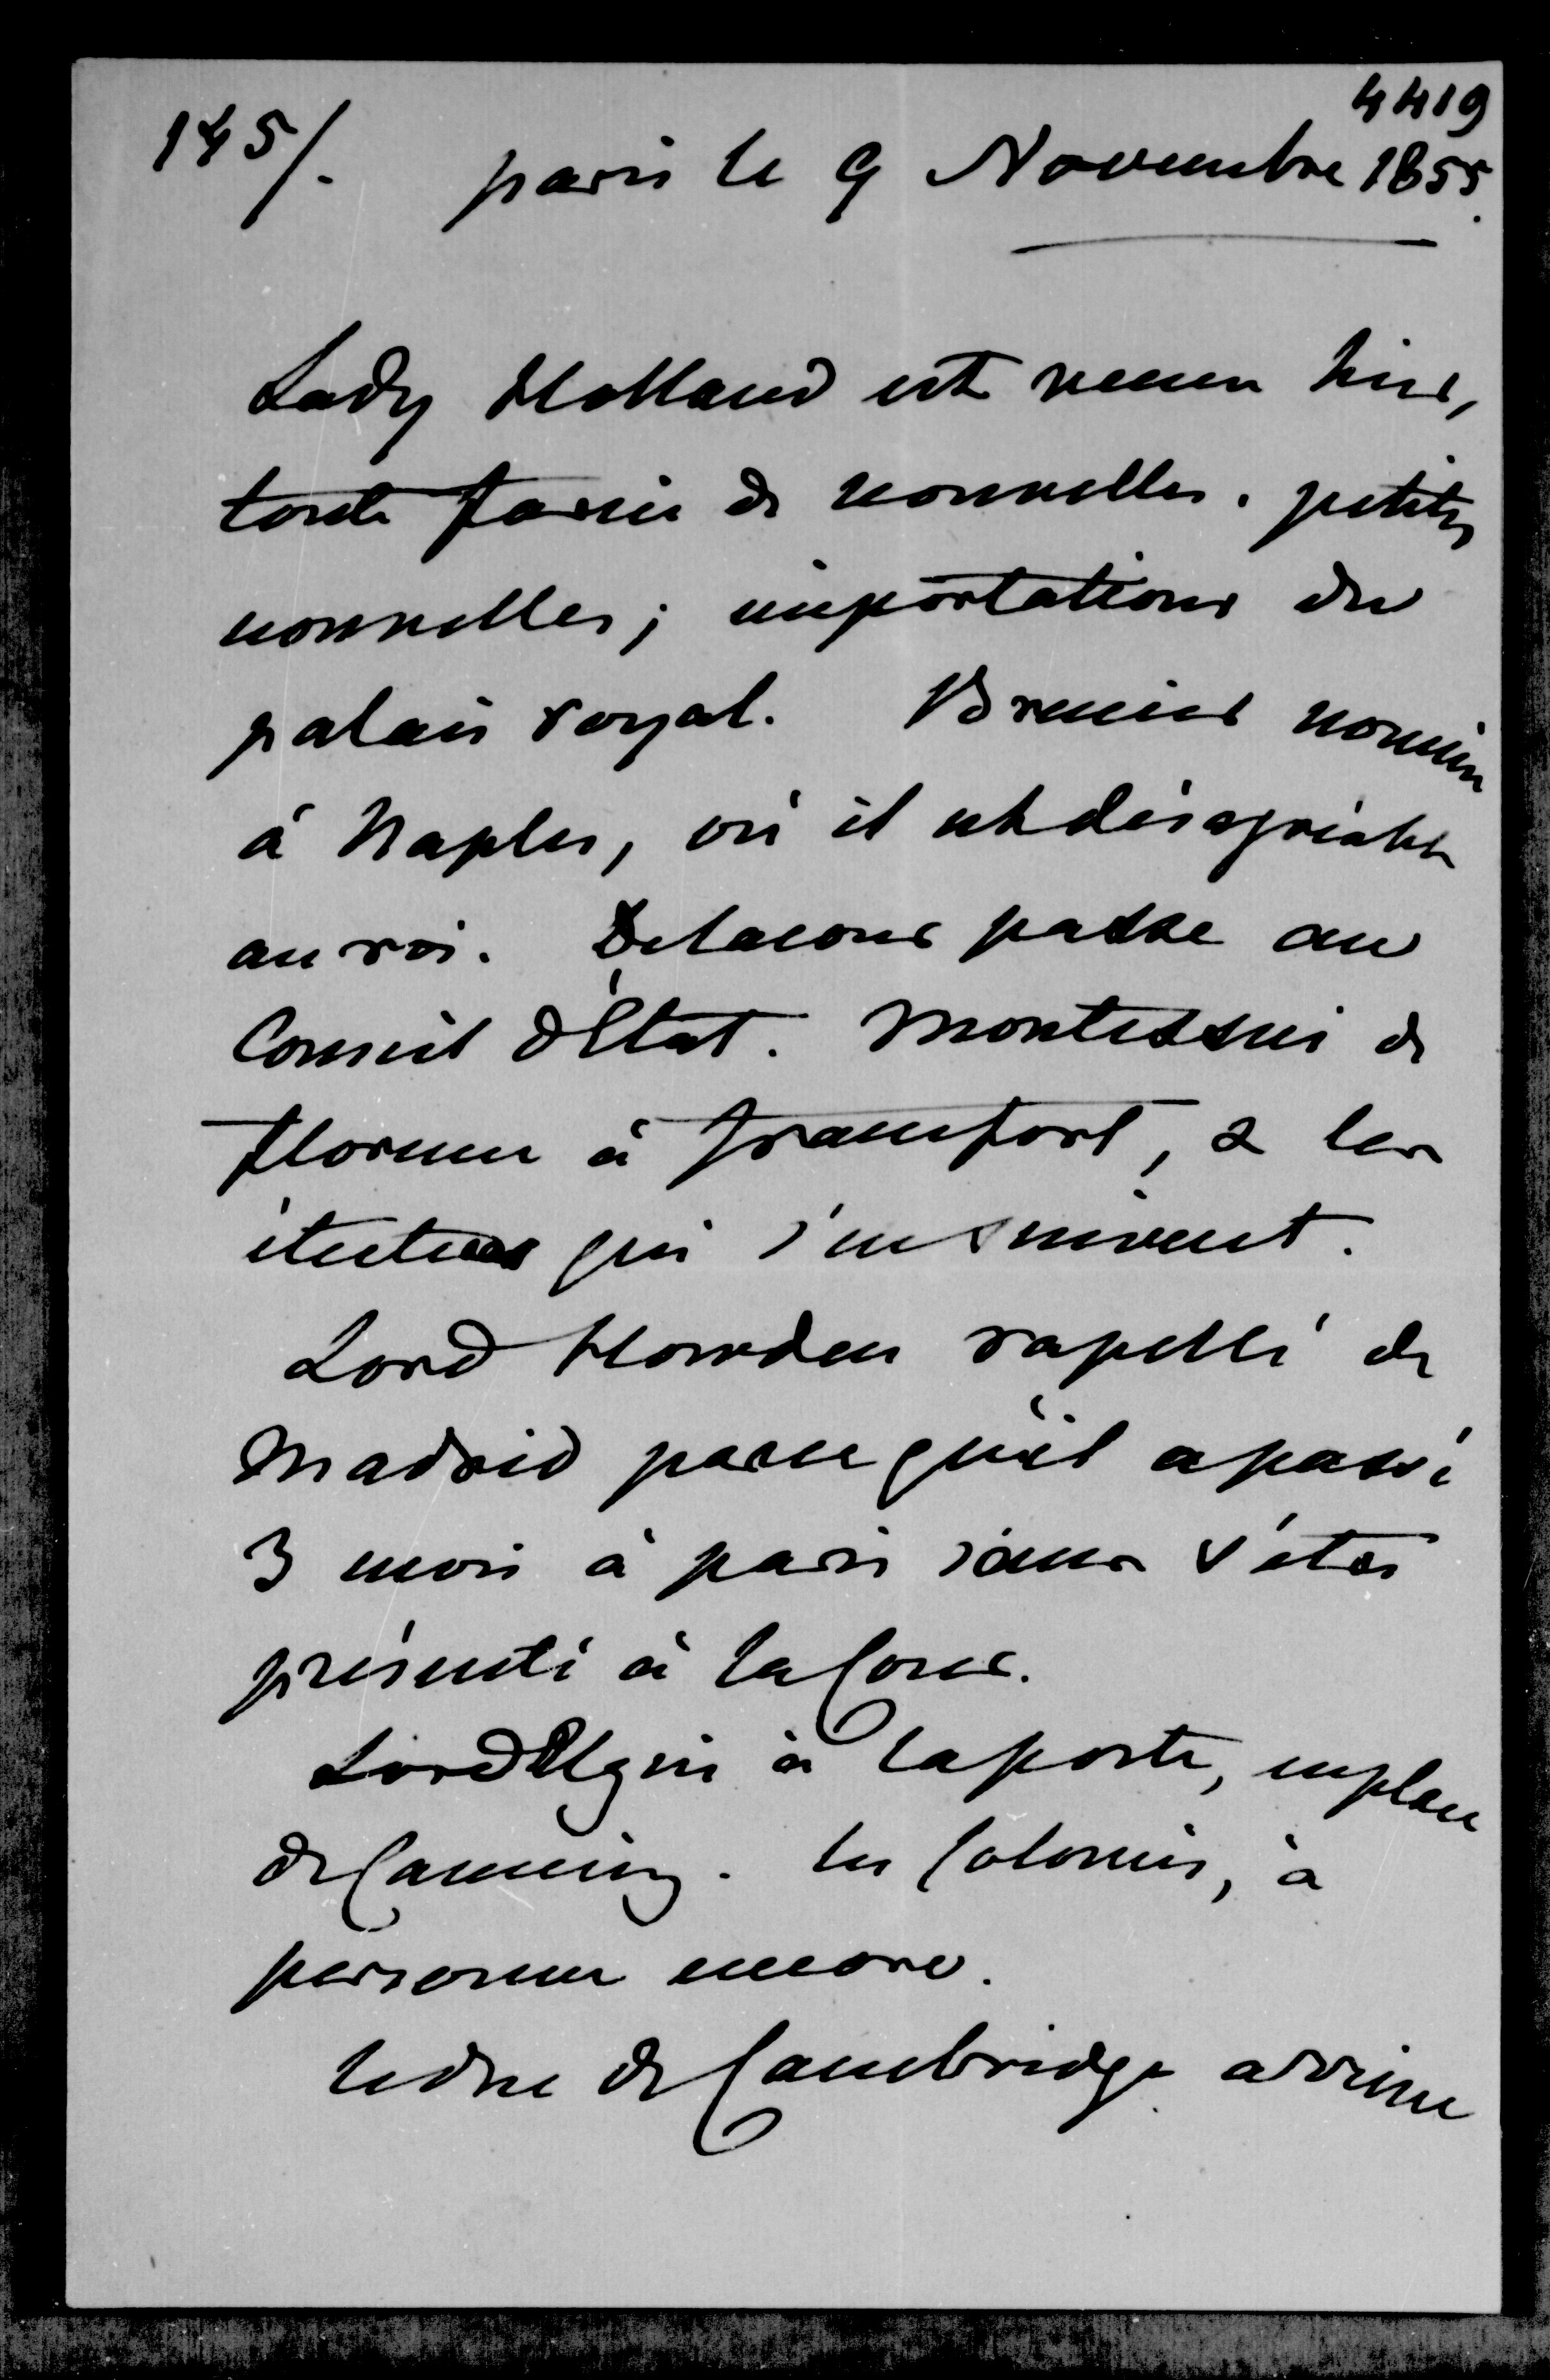 4419
145/. paris le 9 Novembre 1855.
Lady Holland est venue hier,
toute farcie de nouvelles. petites
nouvelles; importations du
palais royal. Brenier nommé
à Naples, où il est désagréable
au roi. Delacour passe au
Conseil d'État. Montessui de
florence à francfort, & les
itutuas qui s'en suivent.
Lord Howden rapellé de
Madrid parcequ'il a passé
3 mois à paris sans s'etre
présenté à la Cour.
Lord Elgin à la porte, en place
de Canning. les Colonies, à
personne encore.
le duc de Cambridge arrive